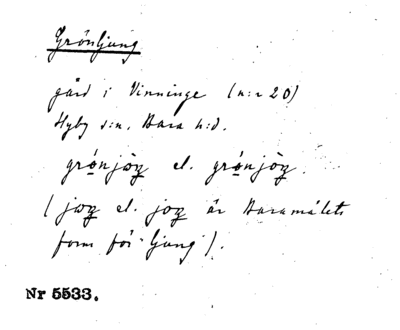 Grönljung
gård i Vinninge (n:r 20)
Hyby s:n. Bara h:d.
grònjòŋ el. grònjòŋ.
(jɷŋ el. joŋ är Baramålets
form för ljung).
Nr 5533.